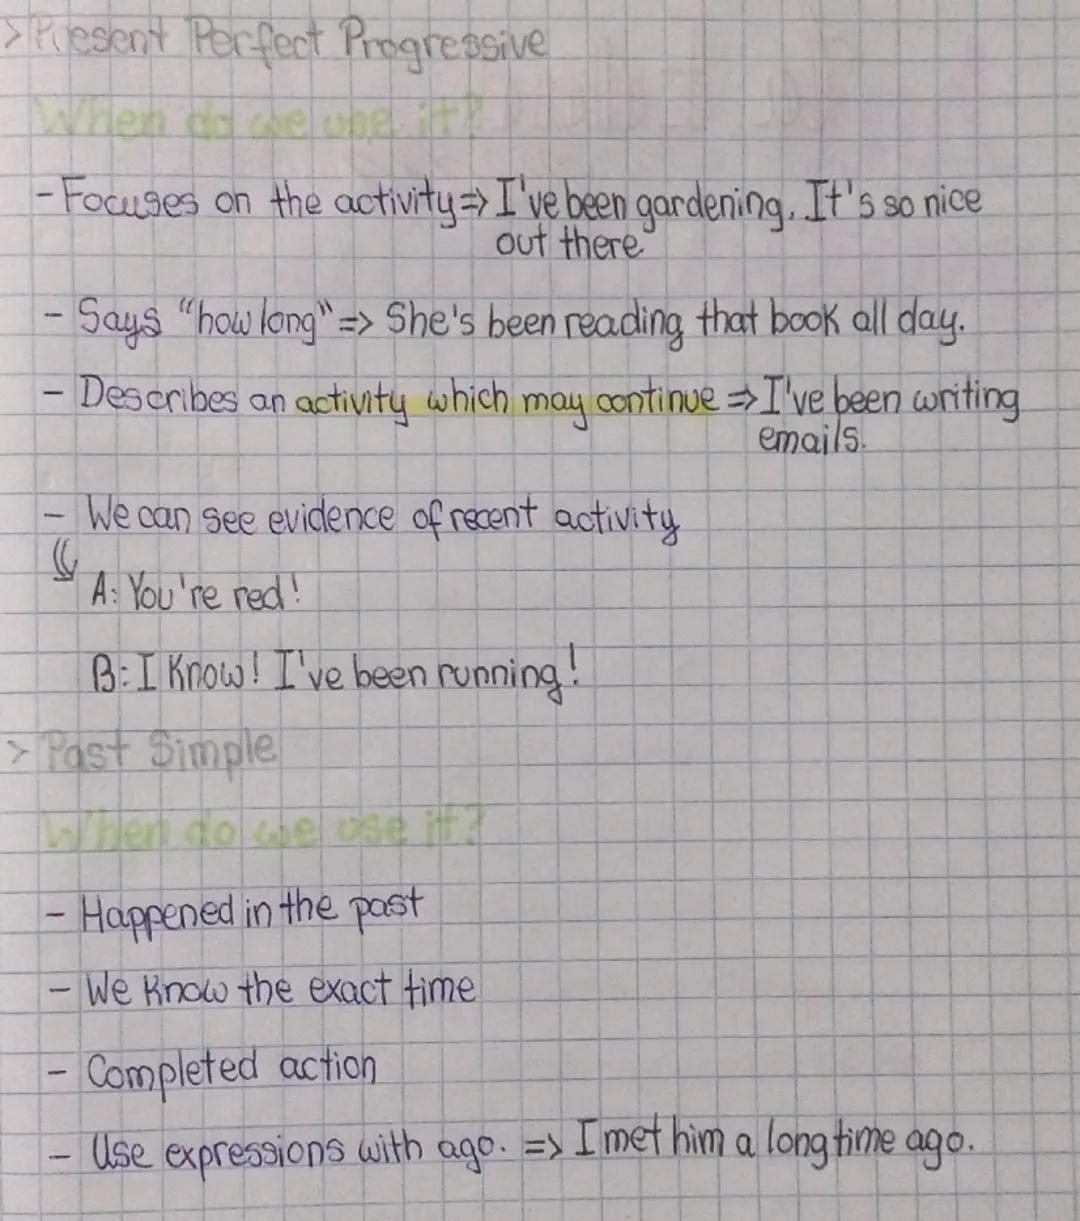 > Present Perfect Progressive
When do we use it?
- Focuses on the activity => I've been gardening. It's so nice
out there.
- Says "how long" => She's been reading that book all day.
- Describes an activity which may continue => I've been writing
emails.
- We can see evidence of recent activity
A: You're red!
B: I know! I've been running!
> Past Simple
When do we use it?
- Happened in the past
- We know the exact time
- Completed action
- Use expressions with ago. => I met him a long time ago.